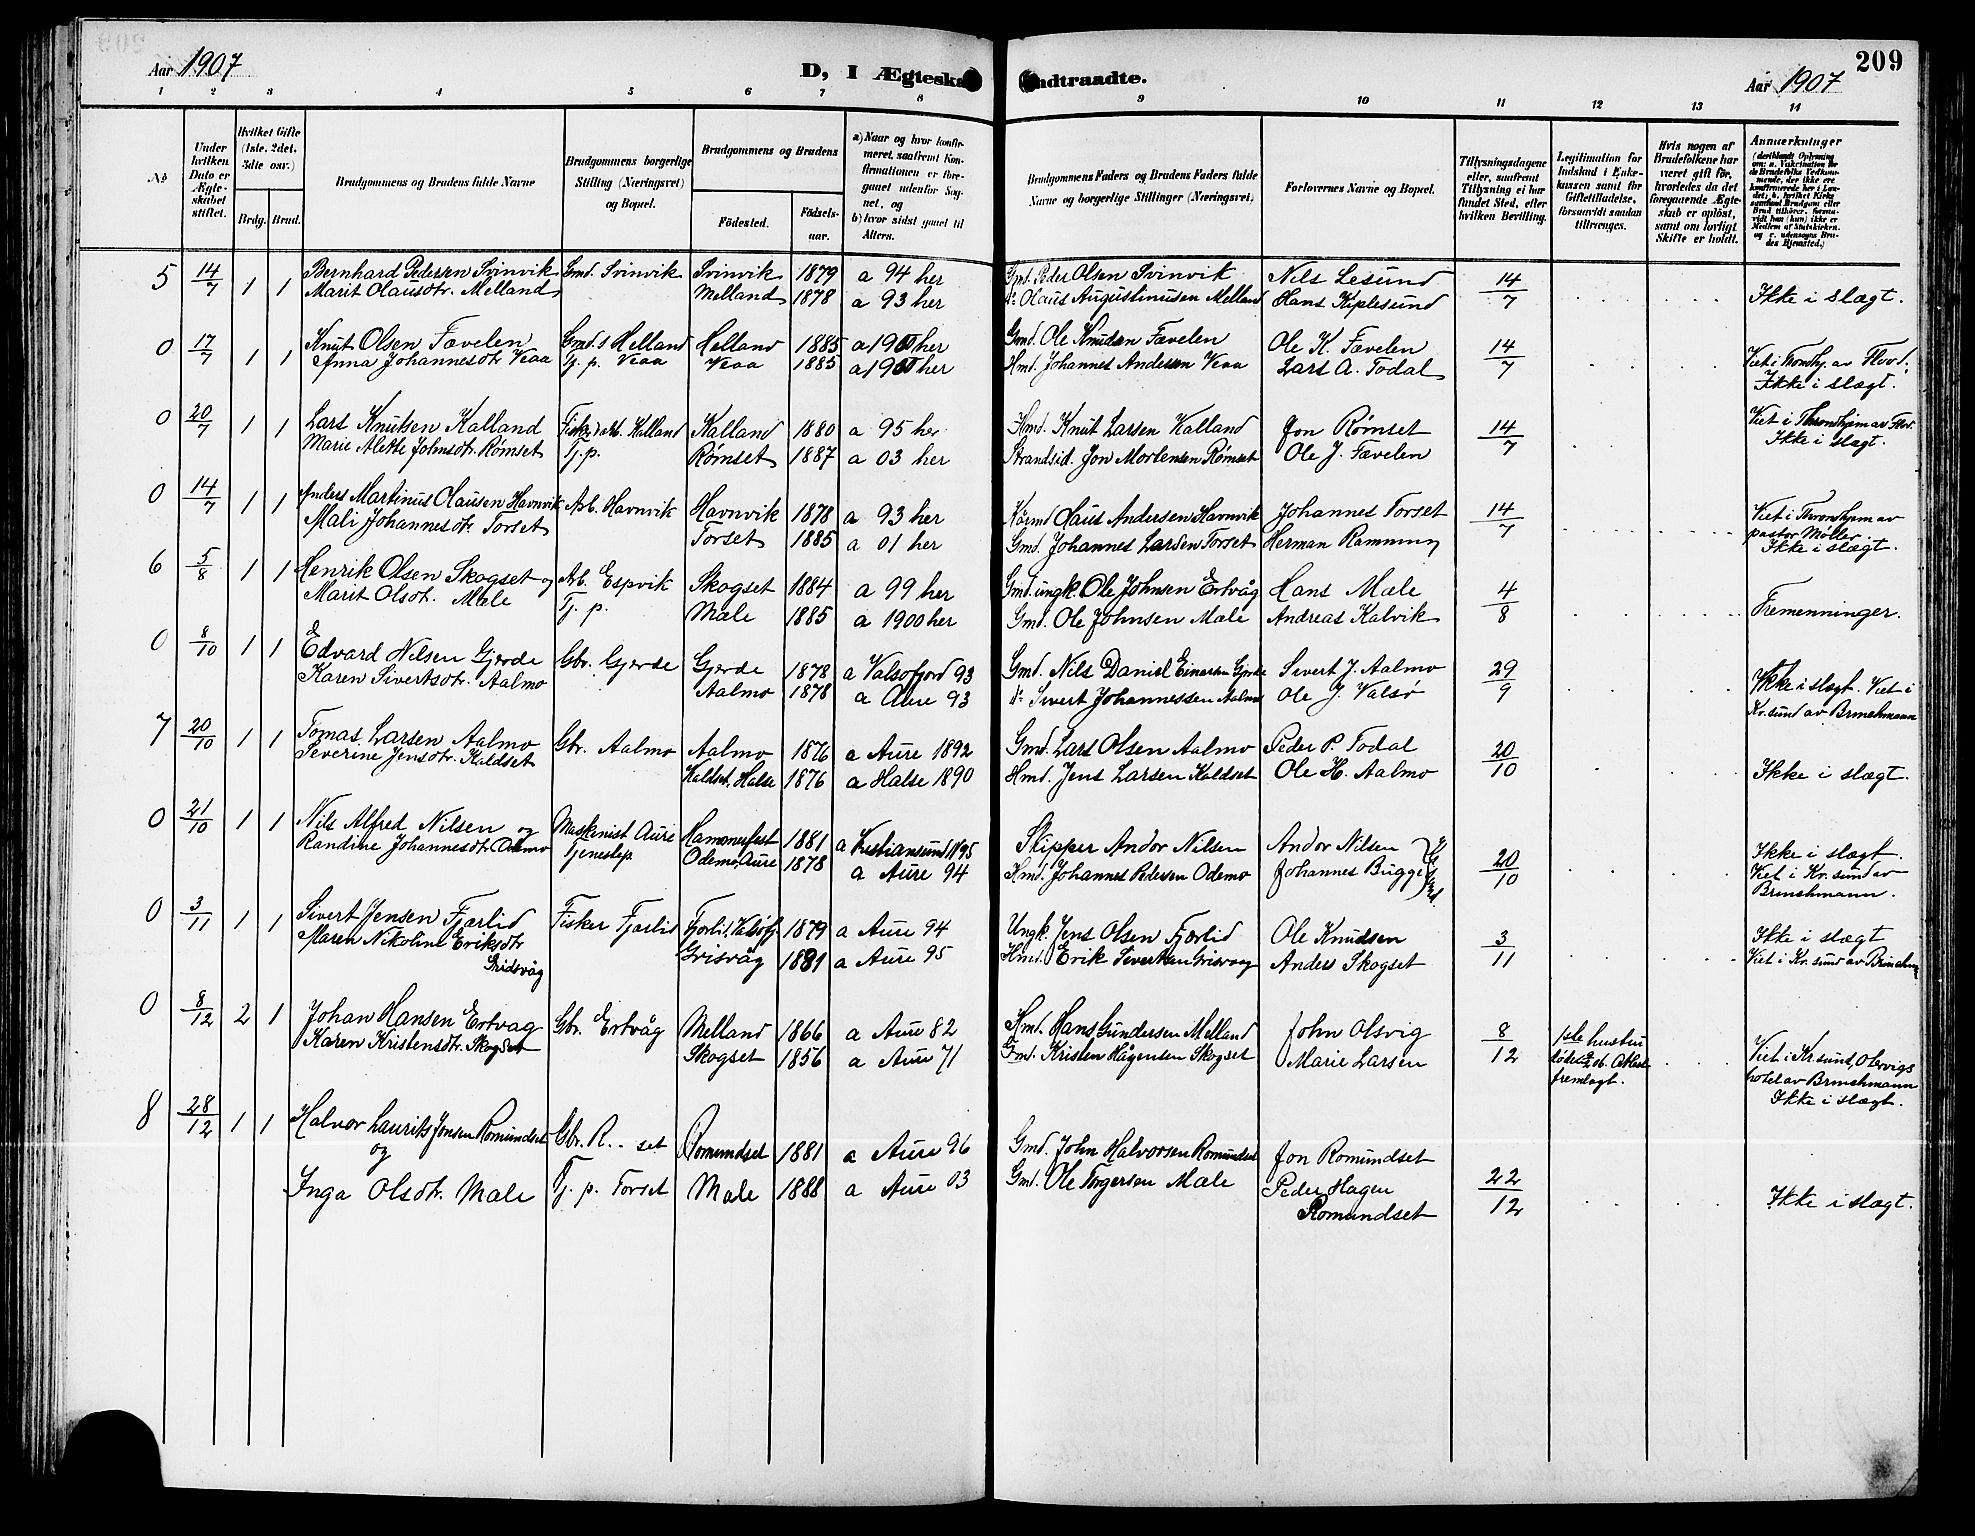 209
Aar 1907
D, I Ægteska
indtraadte.
Aar 1907
1 2 3 4 5 6 7 8 9 10 11 12 13 14
No
Under hvilken Dato er Ægteskabet stiftet.
Hvilket Gifte (1ste, 2det, 3die osv.)
Brdg. Brud.
Brudgommens og Brudens fulde Navne
Brudgommens borgerlige Stilling (Næringsvei) og Bopæl.
Brudgommens og Brudens
Fødested.
Fødsels-aar.
a) Naar og hvor konfirmeret, saafremt Konfirmationen er foregaaet udenfor Sognet, og
b) hvor sidst gaaet til Alters.
Brudgommens Faders og Brudens Faders fulde Navne og borgerlige Stillinger (Næringsvei)
Forlovernes Navne og Bopæl.
Tillysningsdagene eller, saafremt Tillysning ei har fundet Sted, efter hvilken Bevilling.
Legitimation for Indskud i Enkekassen samt for Giftetilladelse, forsaavidt saadan tiltrænges.
Hvis nogen af Brudefolkene har været gift før, hvorledes da det foregaaende Ægteskab er opløst, samt om lovligt Skifte er holdt.
Anmærkninger
(deriblandt Oplysning om: a. Vaksination for de Brudefolks Vedkommende, der ikke ere konfirmerede her i Landet; b. hvilket Kirkesamfund Brudgom eller Brud tilhører, forsaavidt han (hun) ikke er Medlem af Statskirken, og c. udensogns Brudes Hjemsted.)
5 14/7 1 1 Bernhard Pedersen Svinvik Gmd. Svinvik Svinvik 1879 a 94 her Gmd. Peder Olsen Svinvik Nils Lesund 14/7
Marit Olausdtr. Melland Melland 1878 a 93 her do Olaus Augustinusen Melland Hans Kiplesund Ikke i slægt.
0 17/7 1 1 Knut Olsen Fævelen Gmd.s Helland Helland 1885 a 1900 her Gmd. Ole Knudsen Fævelen Ole K. Fævelen 14/7 Viet i Trondhj. av Flod.
Anna Johannesdtr Veaa Tj. p. Veaa Veaa 1885 a 1900 her Hmd. Johannes Andersen Veaa Lars A. Todal Ikke i slægt.
0 20/7 1 1 Lars Knutsen Kalland Fisker Arb. Kalland Kalland 1880 a 95 her Hmd. Knut Larsen Kalland Jon Rømset 14/7 Viet i Throndhjem av Flod.
Marie Alette Johnsdtr. Rømset Tj.p. Rømset 1887 a 03 her Strandsid. Jon Mortensen Rømset Ole J. Fævelen Ikke i slægt.
0 14/7 1 1 Anders Martinus Olausen Havnvik Arb. Havnvik Havnvik 1878 a 93 her Olaus Andersen Havnvik Johannes Torset 14/7 Viet i Throndhjem av
Mali Johannesdtr. Torset Torset 1885 a 01 her Gmd. Johannes Larsen Torset Herman Ramming pastor Møller.
Ikke i slægt.
6 5/8 1 1 Henrik Olsen Skogset og Arb. Espvik Skogset 1884 a 99 her Gmd. ungk. Ole Johnsen Ertvåg Hans Mæle 4/8
Marit Olsdtr. Mæle Tj. p. Mæle 1885 a 1900 her Gmd. Ole Johnsen Mæle Andreas Kalvik Fremenninger.
0 8/10 1 1 Edvard Nilsen Gjerde Gbr. Gjerde Gjerde 1878 a Valsøfjord 93 Gmd. Nils Daniel Einarsen Gjerde Sivert J. Aalmo 29/9 Ikke i slægt. Viet i
Karen Sivertsdtr. Aalmo Aalmo 1878 a Aure 93 do Sivert Johannessen Aalmo Ole J. Valsø Kr.sund av Brinchmann
7 20/10 1 1 Tomas Larsen Aalmo Gbr. Aalmo Aalmo 1876 a Aure 1892 Gmd. Lars Olsen Aalmo Peder P. Todal 20/10
Severine Jensdtr. Kaldset Kaldset, Halse 1876 a Halse 1890 Hmd. Jens Larsen Kaldset Ole H. Aalmo Ikke i slægt.
0 21/10 1 1 Nils Alfred Nilsen og Maskinist Aure Hammerfest 1881 a Kristiansund N 95 Skipper Andor Nilsen Andor Nilsen 20/10 Ikke i slægt.
Randine Johannesdtr. Odemo Tjenestep Odemo, Aure 1878 a Aure 94 Hmd. Johannes Pedersen Odemo Johannes Bugge Viet i Kr.sund av
Brinchmann.
0 3/11 1 1 Sivert Jensen Fjærlid Fisker Fjærlid Fjorli, Valsøfj. 1879 a Aure 94 Ungk. Jens Olsen Fjærlid Ole Knudsen 3/11 Ikke i slægt
Maren Nikoline Eriksdtr Grisvåg 1881 a Aure 95 Hmd. Erik Sivertsen Grisvaag Anders Skogset Viet i Kr.sund av Brinchm
Gridsvåg
0 8/12 2 1 Johan Hansen Ertvag Gbr. Ertvåg Melland 1866 a Aure 82 Hmd. Hans Gundersen Melland John Olsvig 8/12 1ste hustru
Karen Kristensdtr. Skogset Skogset 1856 a Aure 71 Gmd. Kristen Hågensen Skogset Marie Larsen Attest fremlagt. Viet i Kr.sund, Olsvigs
hotel av Brinchmann
Ikke i slægt.
8 28/12 1 1 Halvor Laurits Jonsen Romundset Gbr. R.--set Romundset 1881 a Aure 96 Gmd. John Halvorsen Romundset Jon Romundset
og
Inga Olsdtr. Mæle Tj. p. Torset Mæle 1888 a Aure 03 Gmd. Ole Torgersen Mæle Peder Hagen 22/12 Ikke i slægt.
Romundset